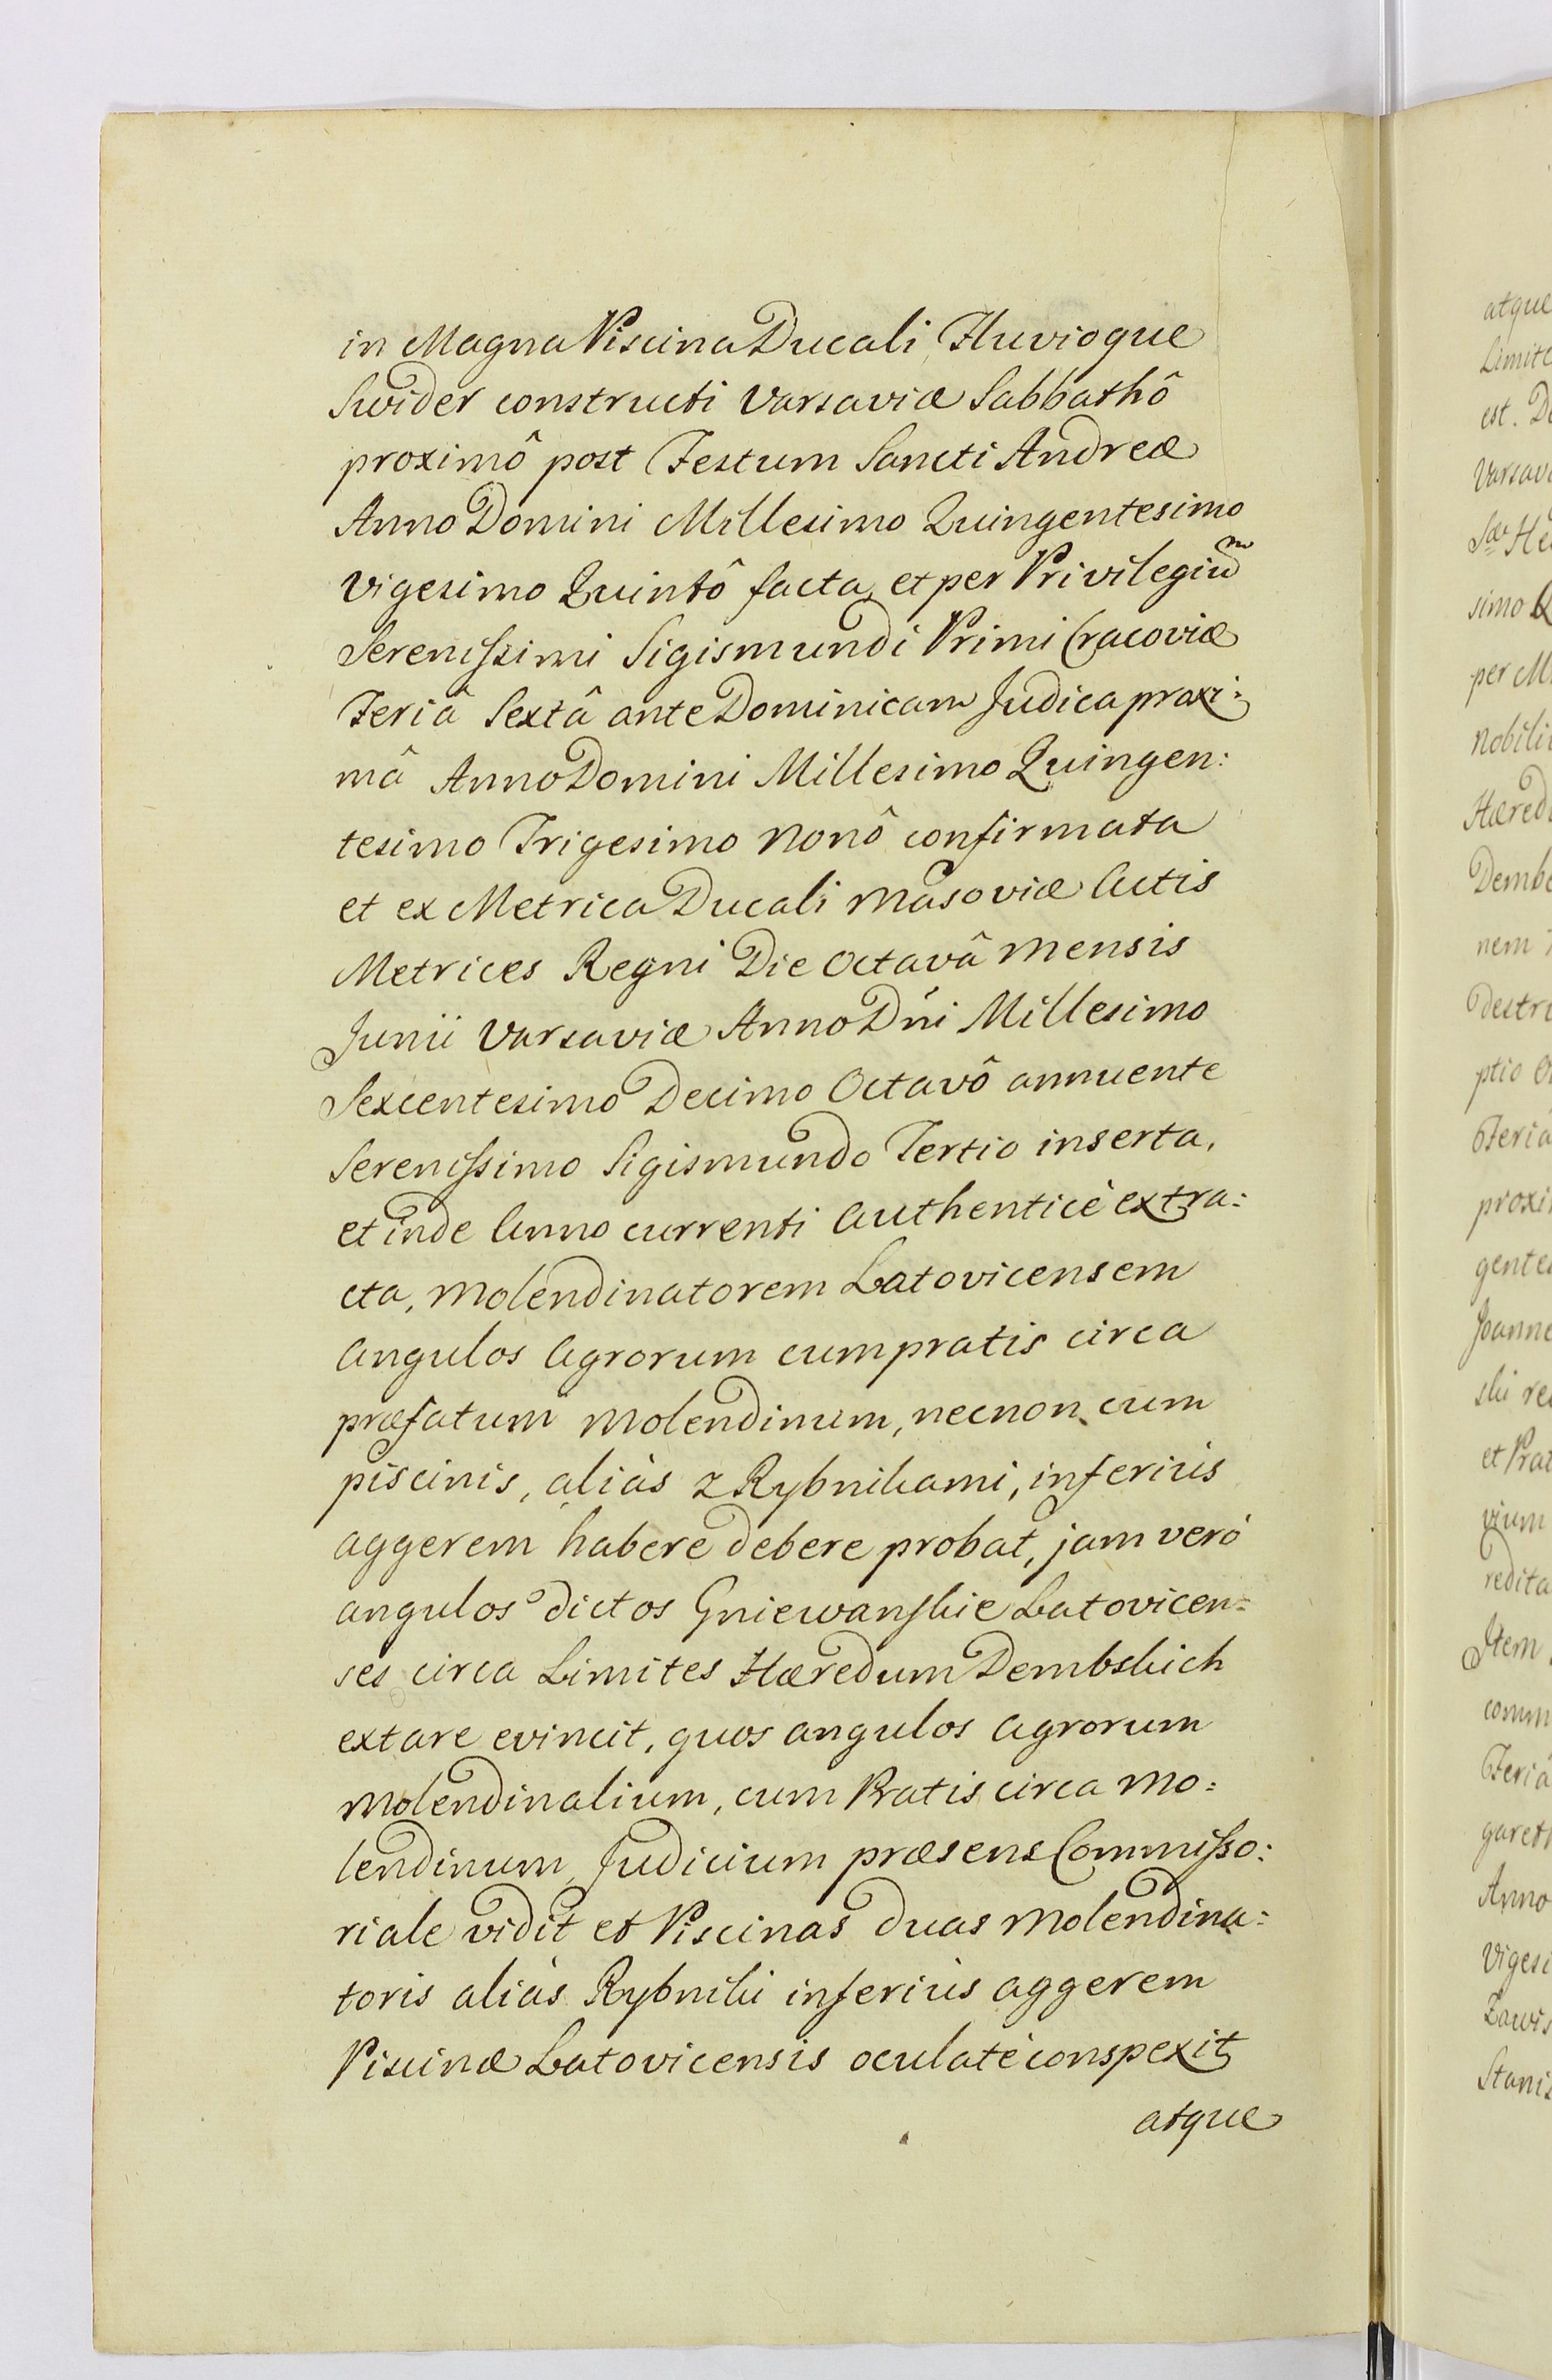 in Magna Piscina Ducali Fluvioque
Swider constructi Varsaviæ Sabbathô
proximô post Festum Sancti Andreæ
Anno Domini Millesimo Quingentesimo
Vigesimo Quintô facta, et per Privilegiũm
Serenissimi Sigismundi Primi Cracoviæ
Feriâ Sextâ ante Dominicam Judica proxi:
mâ Anno Domini Millesimo Quingen:
tesimo Trigesimo Nonô confirmata
et ex Metrica Ducali Masoviæ Actis
Metrices Regni Die Octavâ Mensis
Junii Varsaviæ Anno Dni Millesimo
Sexcentesimo Decimo Octavô annuente
Serenissimo Sigismundo Tertio inserta,
et inde Anno currenti Authenticè extra:
cta, Molendinatorem Latovicensem
Angulos Agrorum cum pratis circa
præfatum Molendinum, necnon cum
piscinis, aliàs z Rybnikami, inferiùs
aggerem habere debere probat, jam verò
angulos dictos Gniewanskie Latovicen=
ses circa Limites Hæredum Dembskich
extare evincit, quos angulos Agrorum
Molendinalium, cum Pratis circa Mo:
lendinum Judicium præsens Commisso:
riale vidit et Piscinas duas Molendina:
toris aliàs Rybniki inferiùs aggerem
Piscinæ Latovicensis oculatè conspexit
atque
atque
Limite
est. D
Varsav
simo Q
per M
Nobili
Hæred
Demb
nem
Destr
ptio
Feriâ
proxi
gente
Joanne
ski re
et Prat
vium
redita
Item
comm
Feriâ
gareth
Anno
Vigesi
Zawis
Stanis